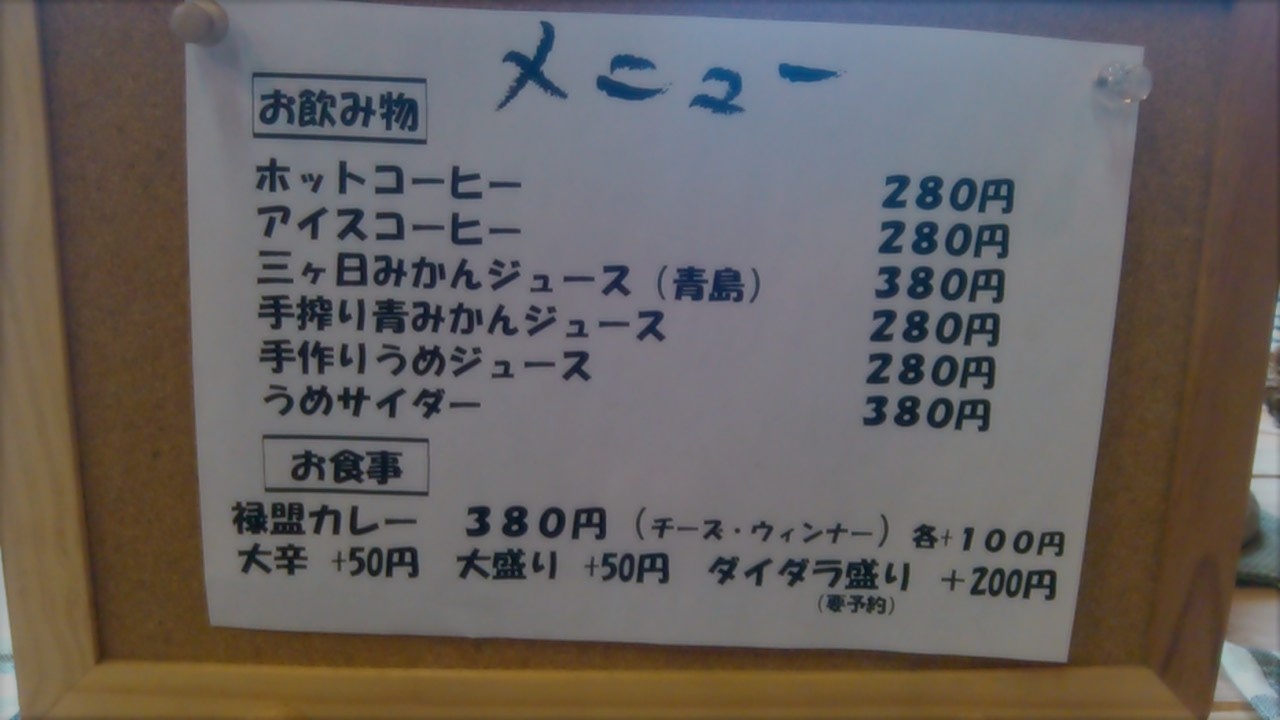 メニュー
お飲み物
ホットコーヒー 280円
アイスコーヒー 280円
三ヶ日みかんジュース（青島） 380円
手搾り青みかんジュース 280円
手作りうめジュース 280円
うめサイダー 380円
お食事
禄盟カレー 380円（チーズ・ウィンナー）各+100円
大辛 +50円 大盛り +50円 ダイダラ盛り +200円
（要予約）